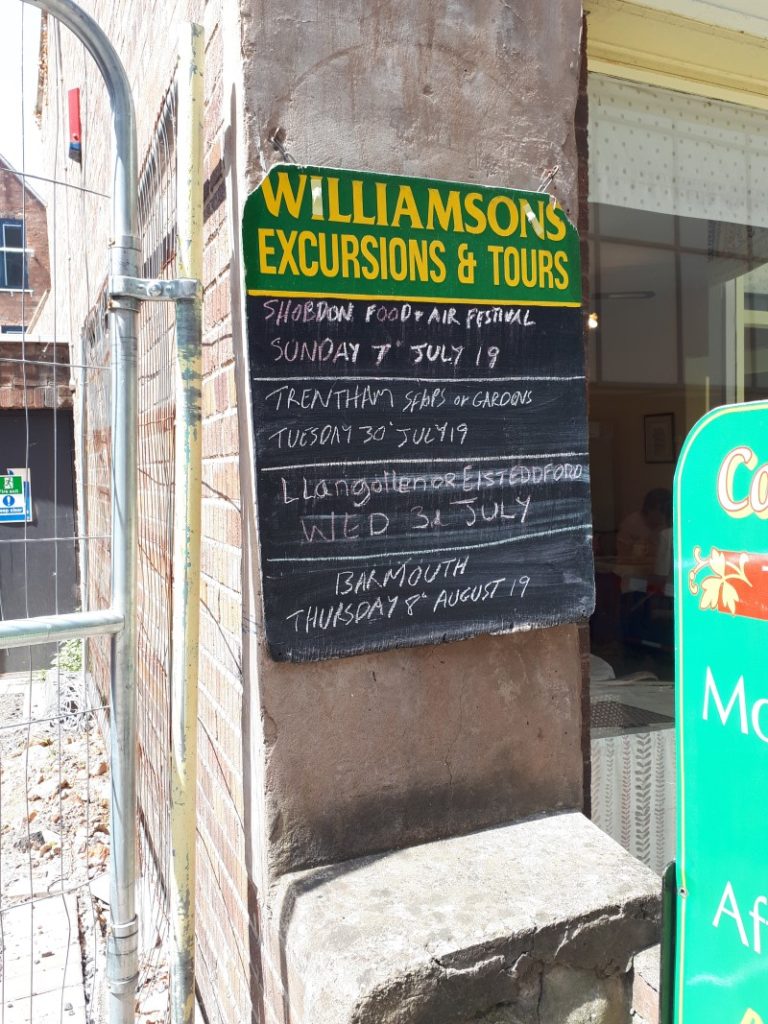 WILLIAMSONS
EXCURSIONS & TOURS
SHOBDON FOOD + AIR FESTIVAL
SUNDAY 7th JULY 19
TRENTHAM SHOPS or GARDENS
TUESDAY 30th JULY 19
LLangollen or EISTEDDFORD
WED 3rd JULY
BARMOUTH
THURSDAY 8th AUGUST 19
Co
Mo
Af